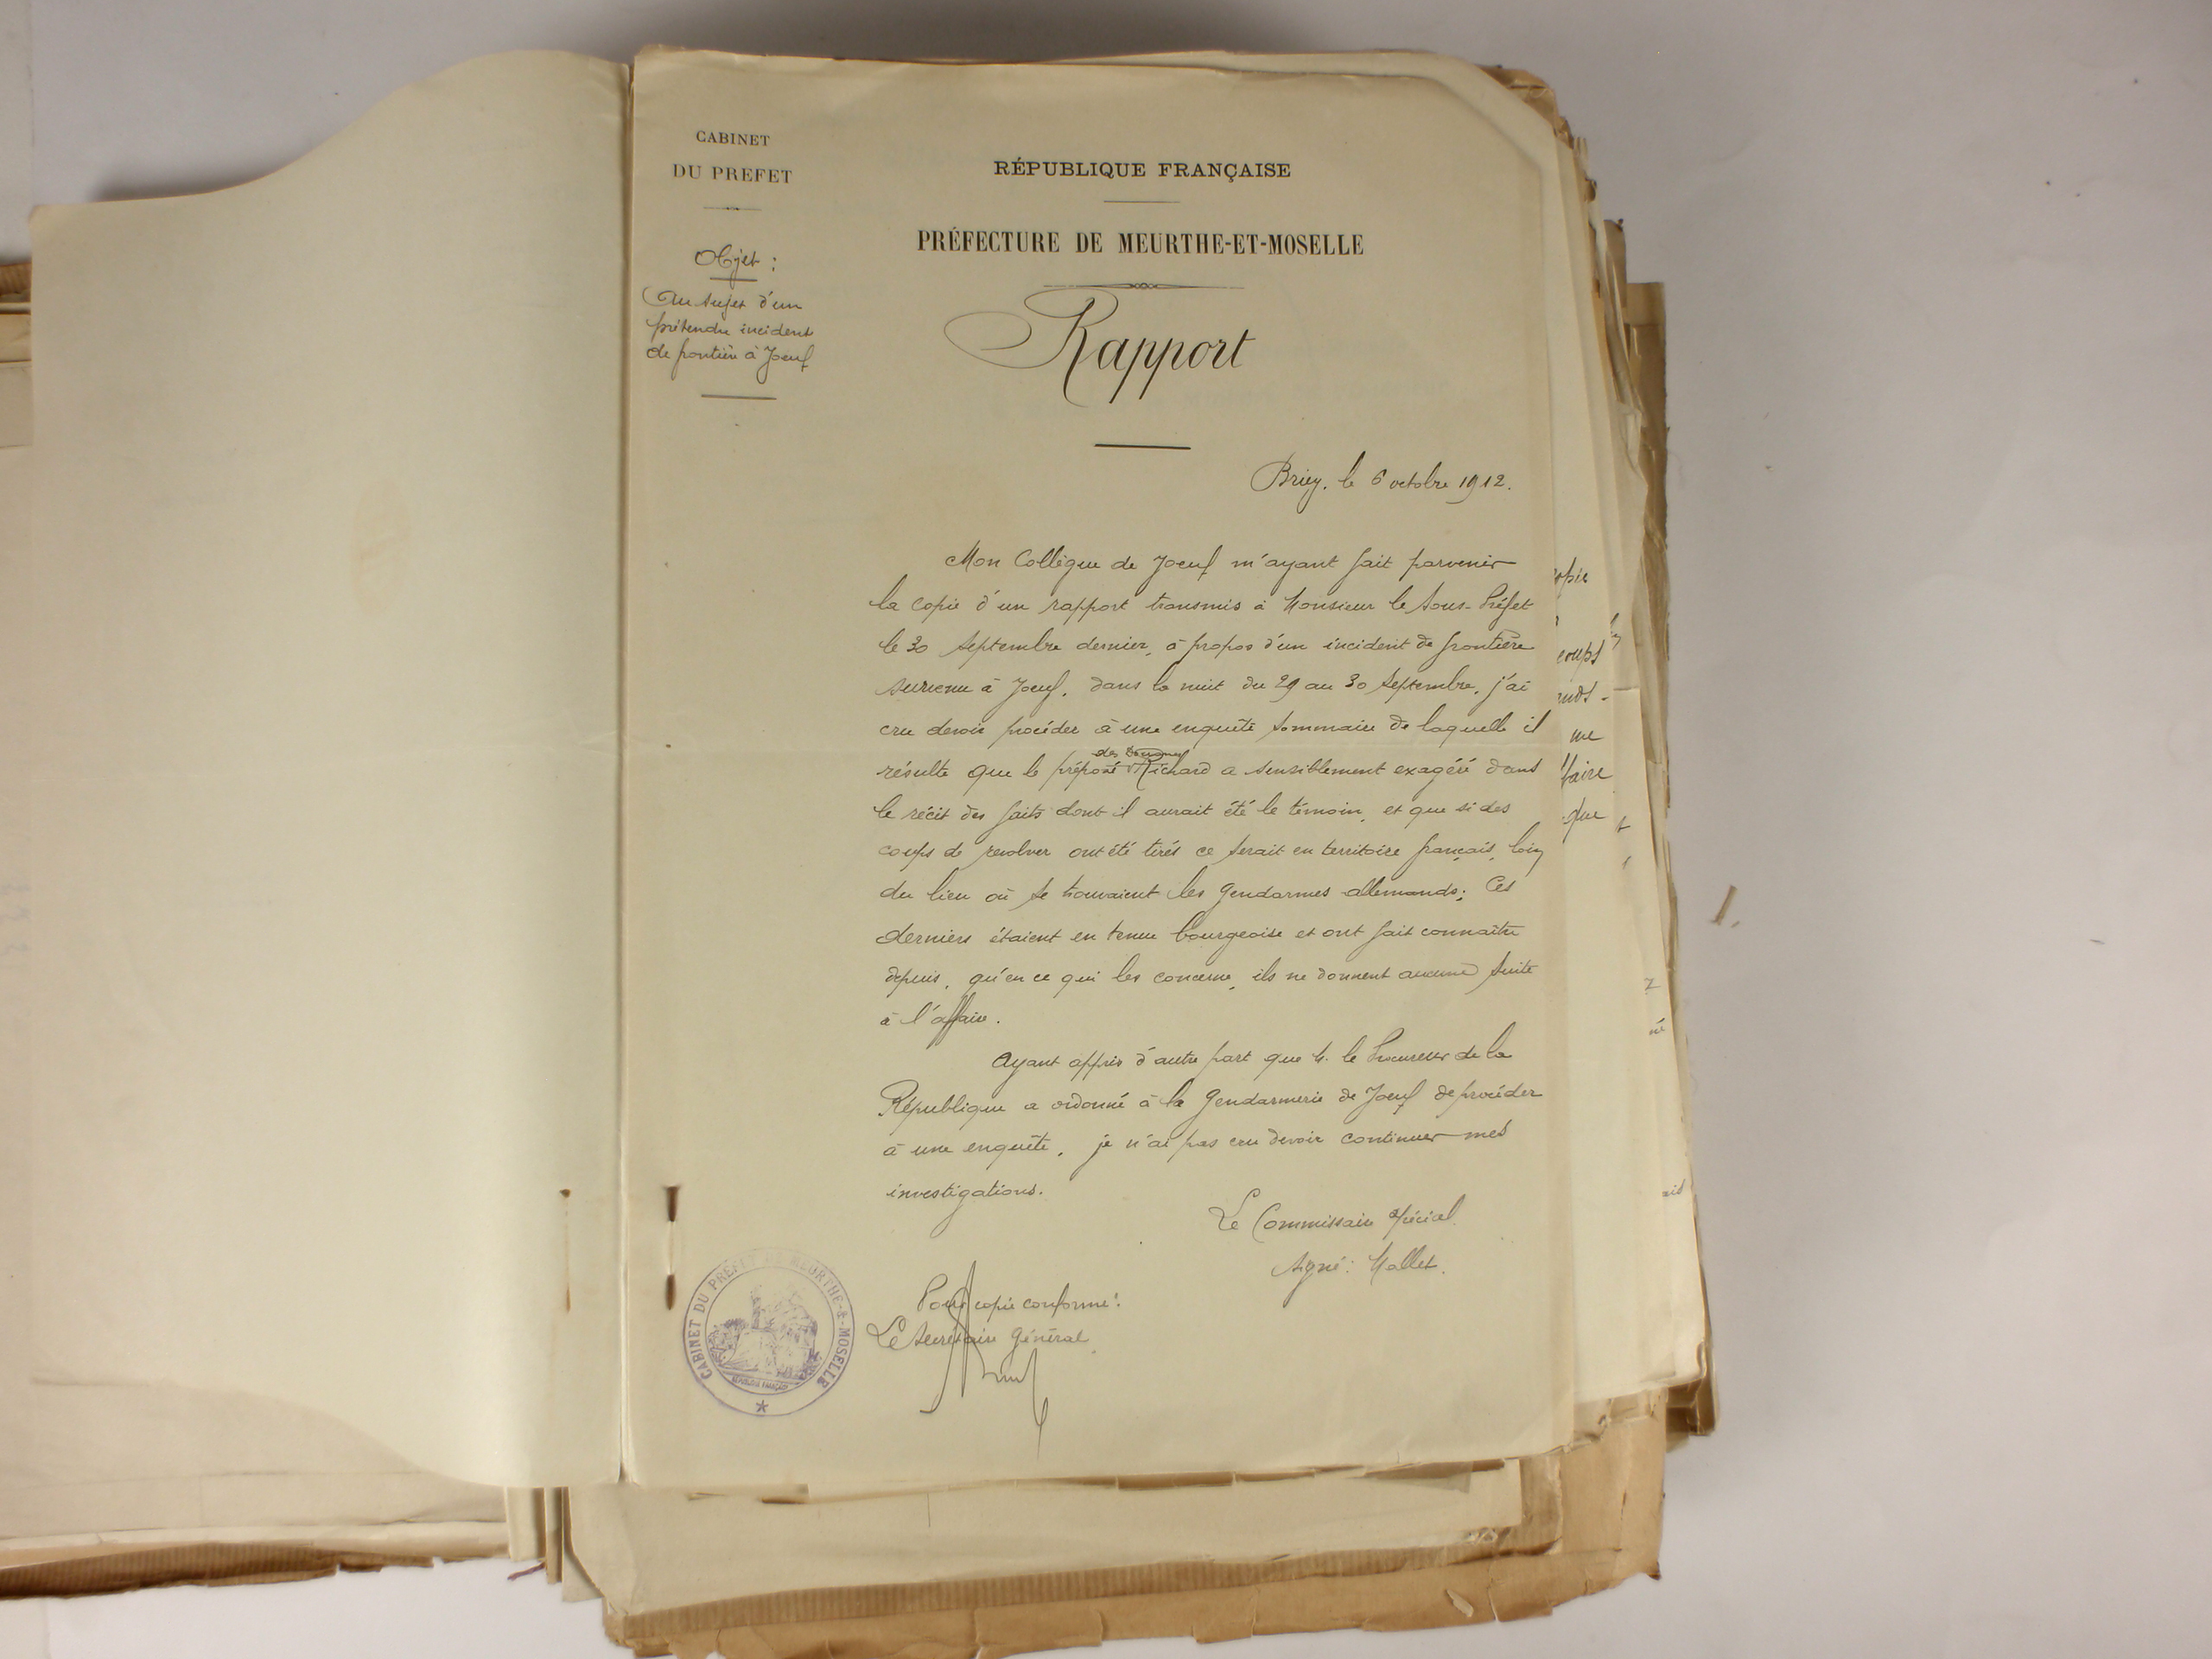 CABINET
DU PREFET
Objet :
Au sujet d'un
prétendu incident
de frontière à Joeuf
RÉPUBLIQUE FRANÇAISE
PRÉFECTURE DE MEURTHE-ET-MOSELLE
Rapport
Briey, le 6 octobre 1912.
Mon Collègue de Joeuf m'ayant fait parvenir
la copie d'un rapport transmis à Monsieur le Sous-Préfet
le 30 Septembre dernier, à propos d'un incident de frontière
survenu à Joeuf, dans la nuit du 29 au 30 Septembre, j'ai
cru devoir procéder à une enquête sommaire de laquelle il
des Douanes
résulte que le préposé Richard a sensiblement exagéré dans
le récit des faits dont il aurait été le témoin, et que si des
coups de revolver ont été tirés ce serait en territoire français, loin
du lieu où se trouvaient les gendarmes allemands; Ces
derniers étaient en tenue bourgeoise et ont fait connaître
depuis, qu'en ce qui les concerne, ils ne donnent aucune suite
à l'affaire.
Ayant appris d'autre part que M. le Procureur de la
République a ordonné à la Gendarmerie de Joeuf de procéder
à une enquête, je n'ai pas cru devoir continuer mes
investigations.
Le Commissaire Spécial
Signé : Mallet.
Pour copie conforme :
Le Secrétaire Général
CABINET DU PREFET DE MEURTHE-&-MOSELLE
opie
coups
ands.
me
faire
que